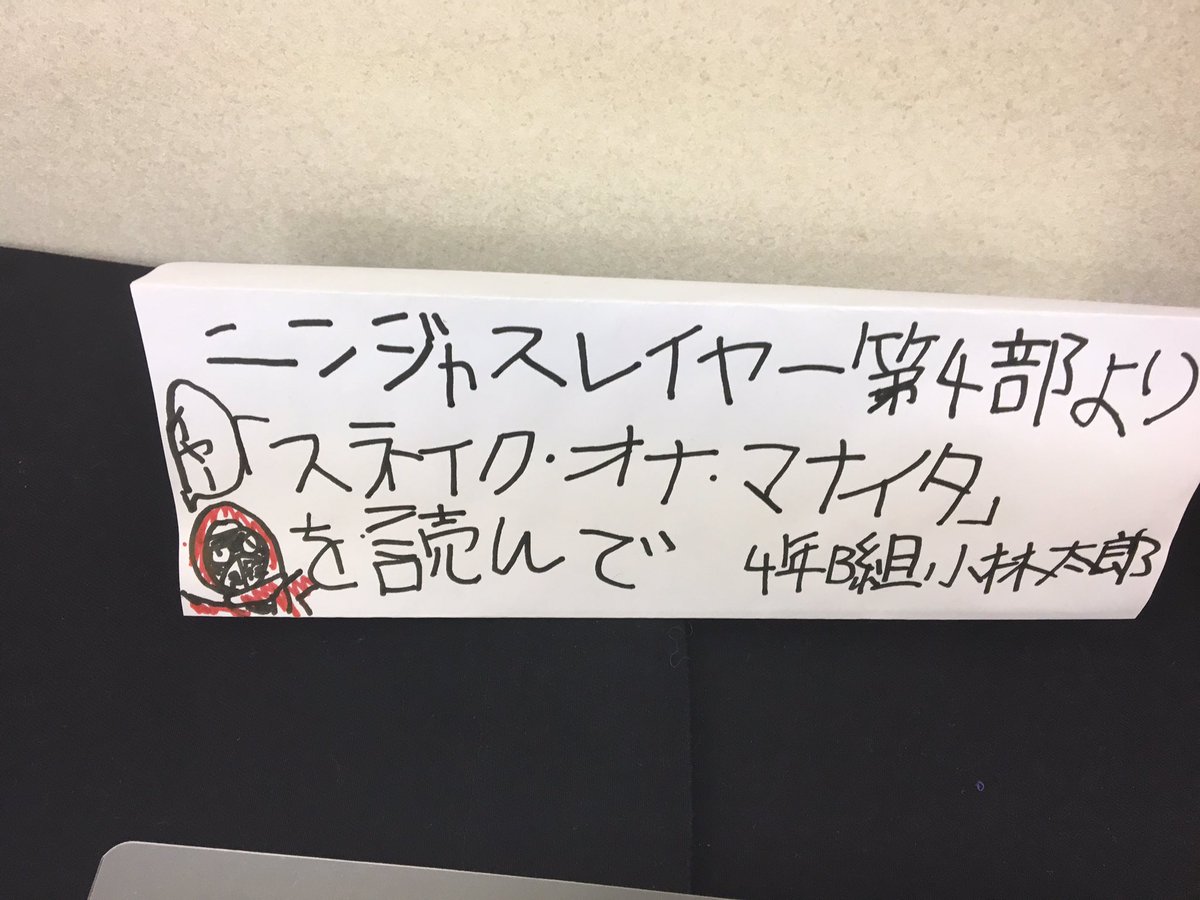 ニンジャスレイヤー第4部より
「スネイク・オナ・マナイタ」
を読んで
4年B組小林太郎
イヤー